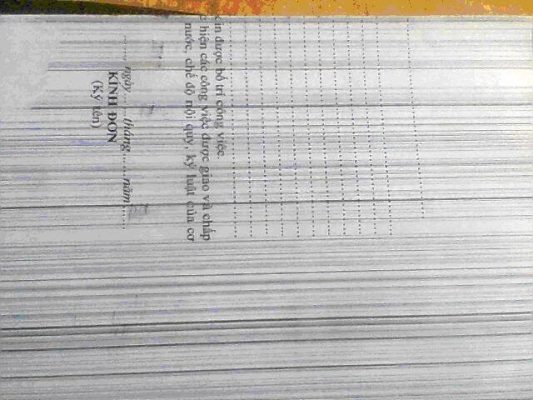 xin được bố trí công việc.
hiện các công việc được giao và chấp
nước, chế độ nội quy, kỷ luật của cơ
ngày ..... tháng ..... năm .....
KÍNH ĐƠN
(Ký tên)